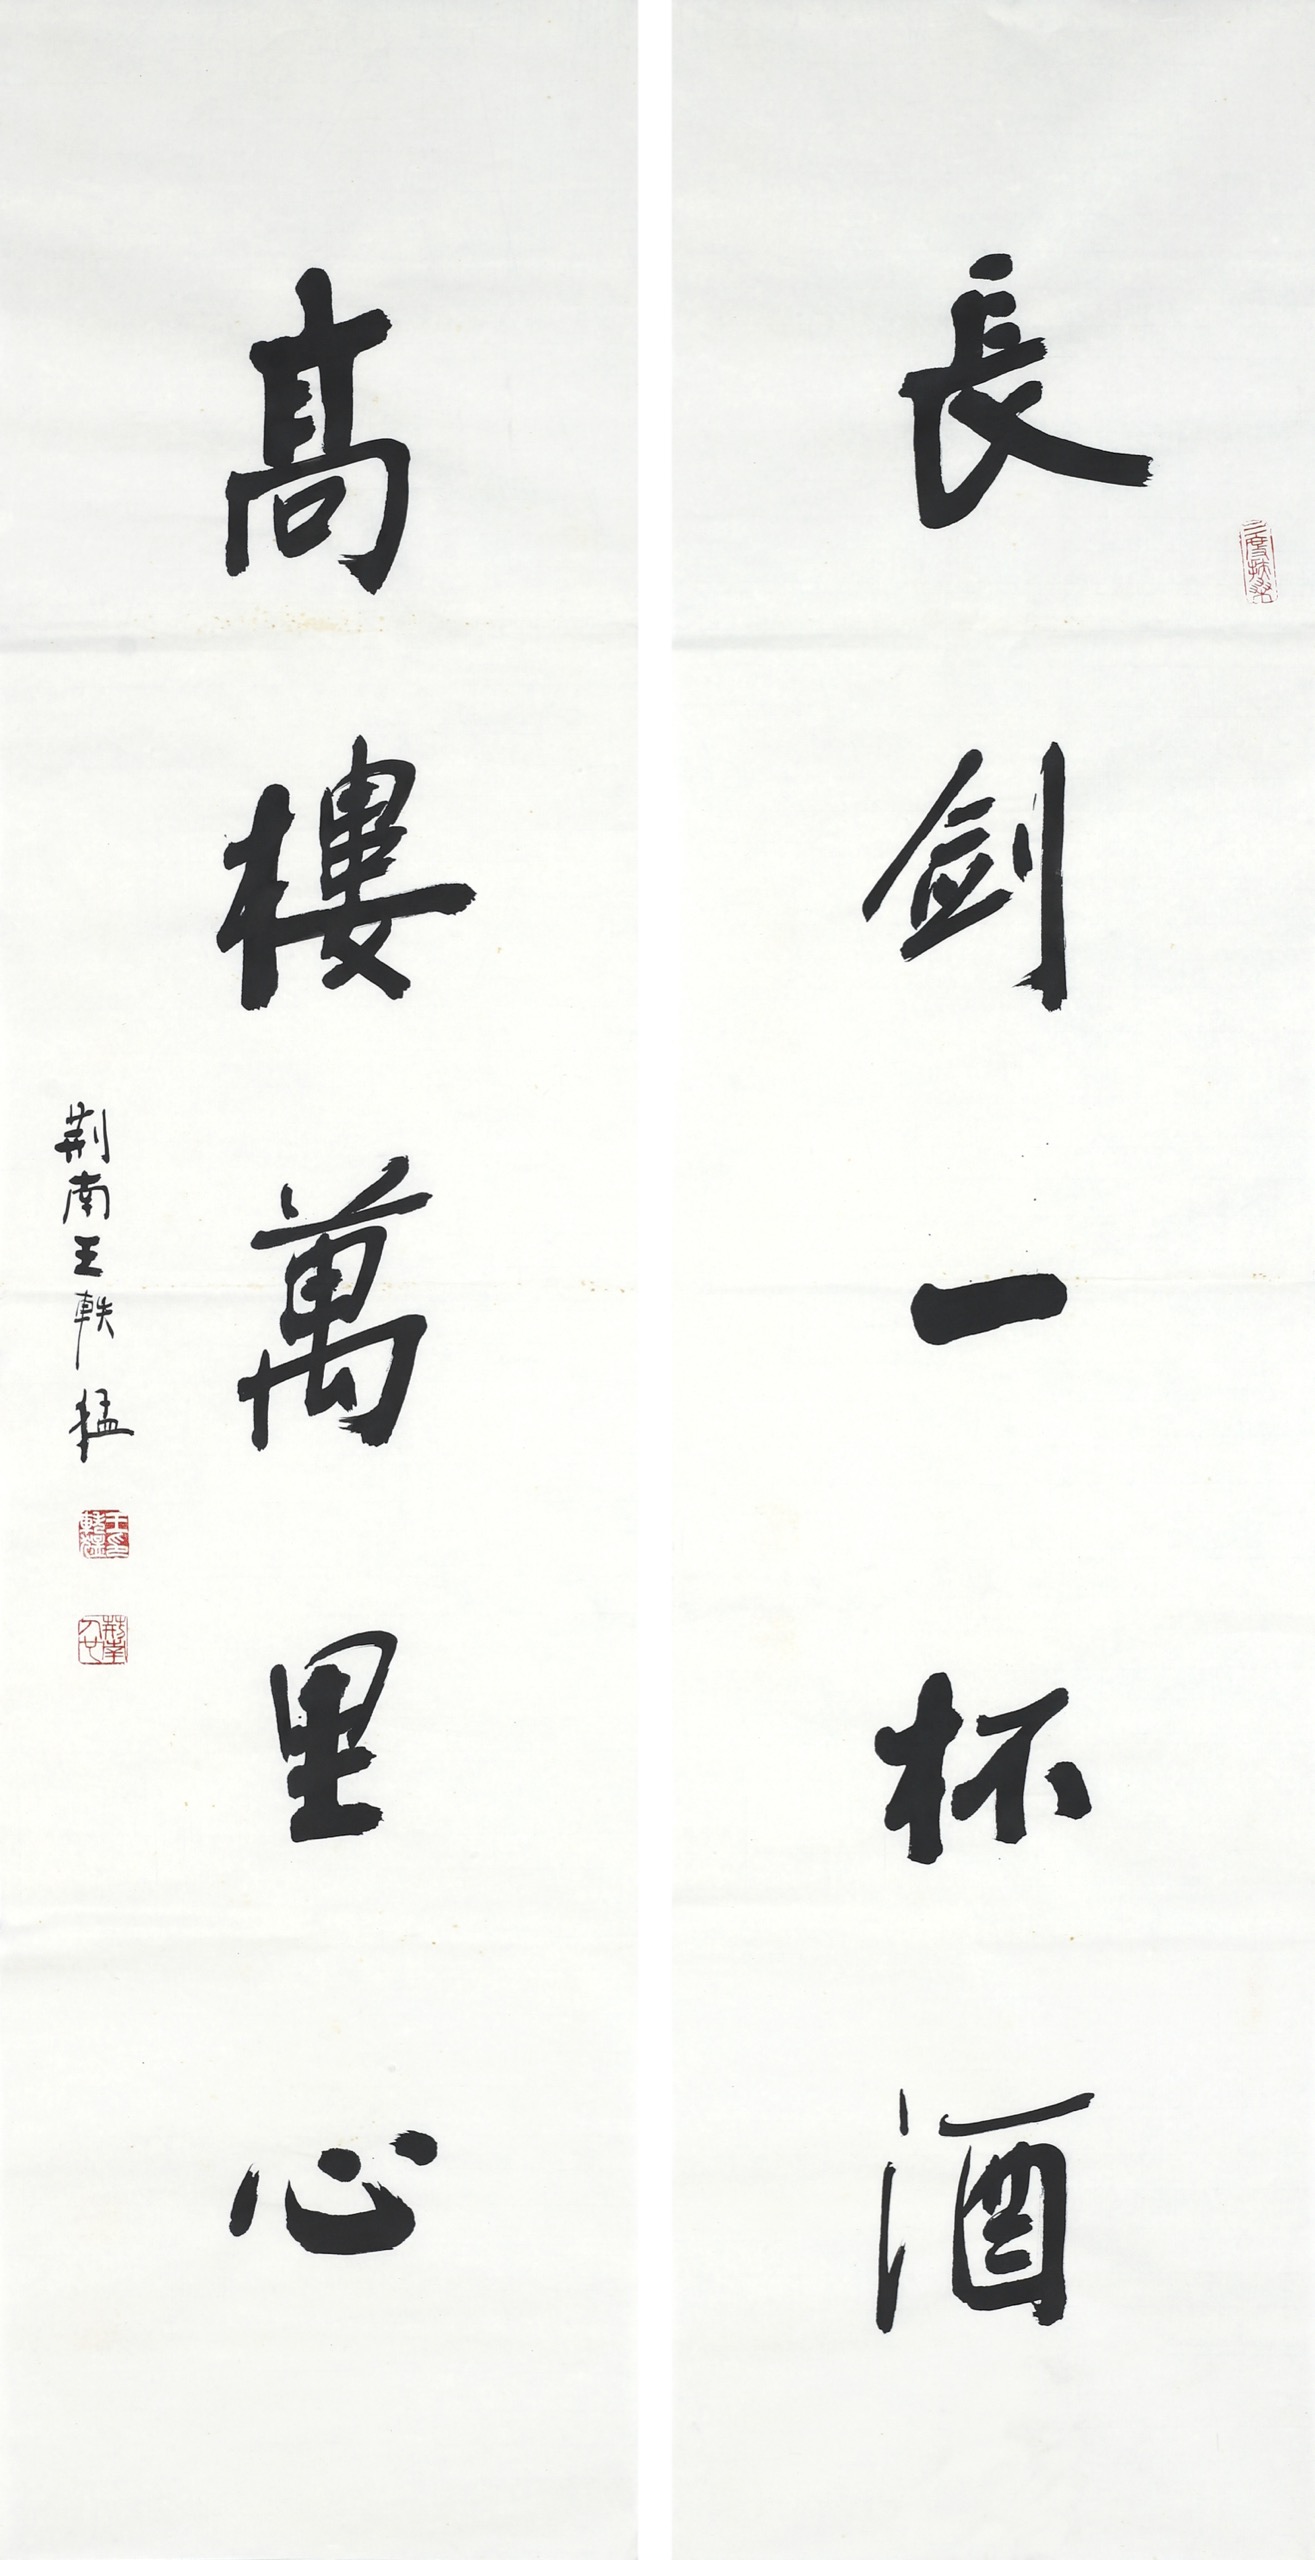 長劍一杯酒
高樓萬里心
荆南王軼猛